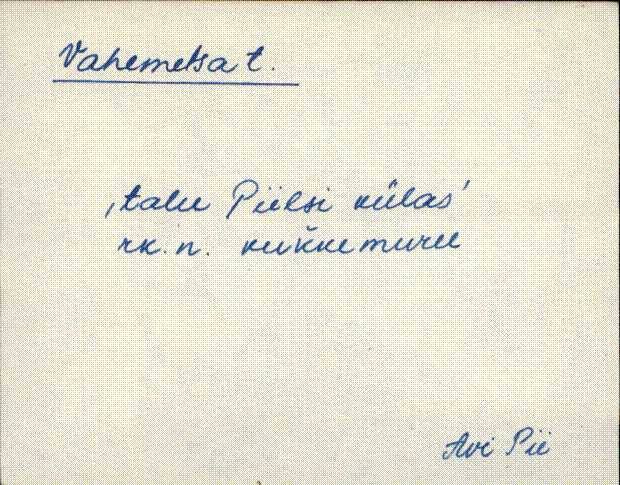 Vahemetsa t.
‚talu Piilsi külas’
rk. n. kuk̆kumuru
Avi Pii